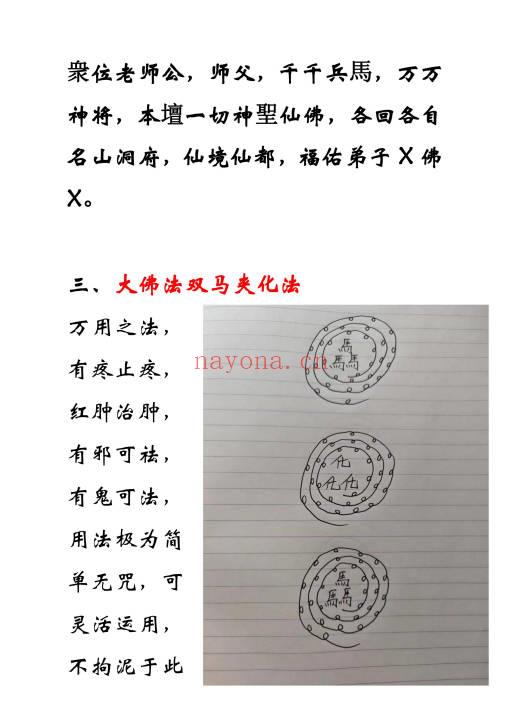 衆位老师公，师父，千千兵馬，万万
神将，本壇一切神聖仙佛，各回各自
名山洞府，仙境仙都，福佑弟子 X 佛
X。
三、大佛法双马夹化法
万用之法，
有疼止疼，
红肿治肿，
有邪可祛，
有鬼可法，
用法极为简
单无咒，可
灵活运用，
不拘泥于此
馬
馬馬
化
化化
馬
馬馬
nayona.cn